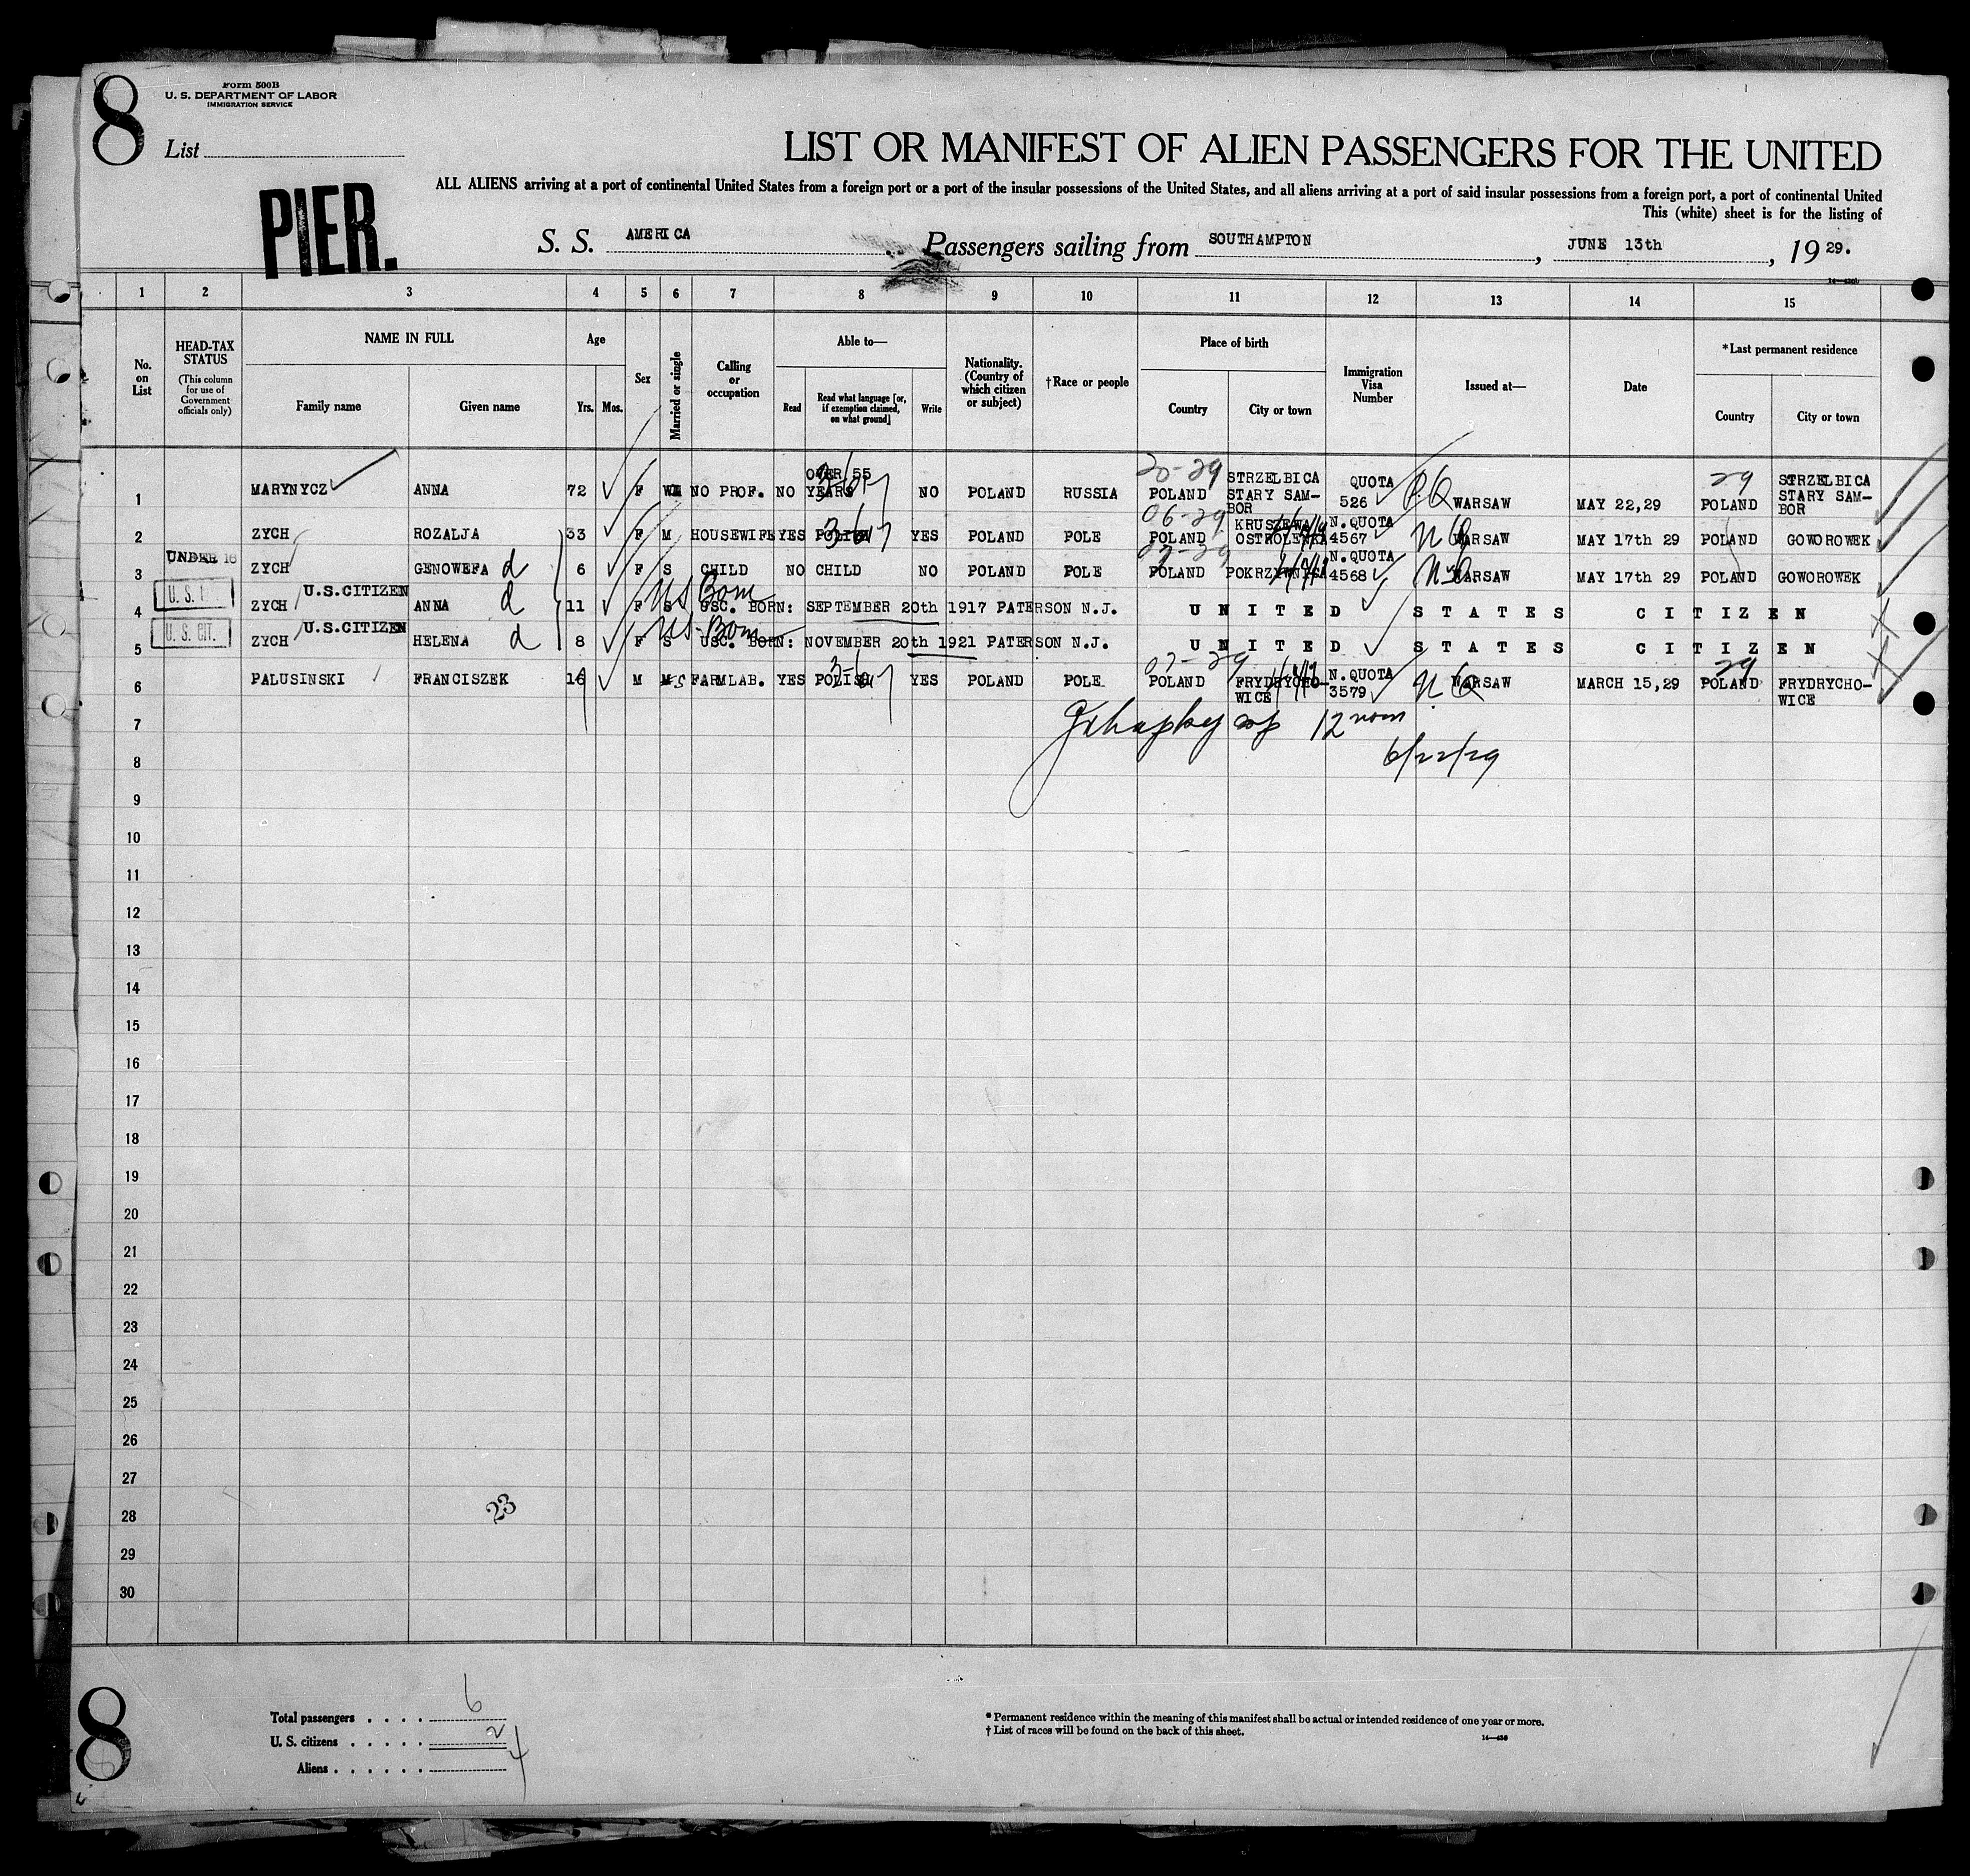 8
Form 500B
U. S. DEPARTMENT OF LABOR
IMMIGRATION SERVICE
List
PIER.
LIST OR MANIFEST OF ALIEN PASSENGERS FOR THE UNITED
ALL ALIENS arriving at a port of continental United States from a foreign port or a port of the insular possessions of the United States, and all aliens arriving at a port of said insular possessions from a foreign port, a port of continental United
This (white) sheet is for the listing of
S. S. AMERICA Passengers sailing from SOUTHAMPTON, JUNE 13th, 19 29.
1 2 3 4 5 6 7 8 9 10 11 12 13 14 15
No. on List
HEAD-TAX STATUS
(This column for use of Government officials only)
NAME IN FULL
Family name Given name
Age
Yrs. Mos.
Sex
Married or single
Calling or occupation
Able to—
Read
Read what language [or, if exemption claimed, on what ground]
Write
Nationality. (Country of which citizen or subject)
†Race or people
Place of birth
Country City or town
Immigration Visa Number
Issued at—
Date
*Last permanent residence
Country City or town
1 MARYNYCZ ANNA 72 F NO PROF. NO OVER 55 YEARS NO POLAND RUSSIA 20-29 POLAND STRZELBICA STARY SAMBOR QUOTA 526 WARSAW MAY 22,29 29 POLAND STRZELBICA STARY SAM-BOR
2 ZYCH ROZALJA 33 F M HOUSEWIFE YES POLISH YES POLAND POLE 06-29 POLAND KRUSZEWA OSTROLENKA N.QUOTA 4567 WARSAW MAY 17th 29 POLAND GOWOROWEK
3 UNDER 16 ZYCH GENOWEFA d 6 F S CHILD NO CHILD NO POLAND POLE POLAND POKRZYWNICA N.QUOTA 4568 WARSAW MAY 17th 29 POLAND GOWOROWEK
4 U. S. CIT. ZYCH U.S.CITIZEN ANNA d 11 F S US Born USC. BORN: SEPTEMBER 20th 1917 PATERSON N.J. UNITED STATES CITIZEN
5 U. S. CIT. ZYCH U.S.CITIZEN HELENA d 8 F S US-Born USC. BORN: NOVEMBER 20th 1921 PATERSON N.J. UNITED STATES CITIZEN
6 PALUSINSKI FRANCISZEK 16 M S FARMLAB. YES POLISH YES POLAND POLE 07-29 POLAND FRYDRYCHO-WICE N.QUOTA 3579 WARSAW MARCH 15,29 29 POLAND FRYDRYCHO-WICE
7
12 noon
8
6/22/29
9
10
11
12
13
14
15
16
17
18
19
20
21
22
23
24
25
26
27
28
23
29
30
8
Total passengers 6
U. S. citizens 2
Aliens 4
* Permanent residence within the meaning of this manifest shall be actual or intended residence of one year or more.
† List of races will be found on the back of this sheet.